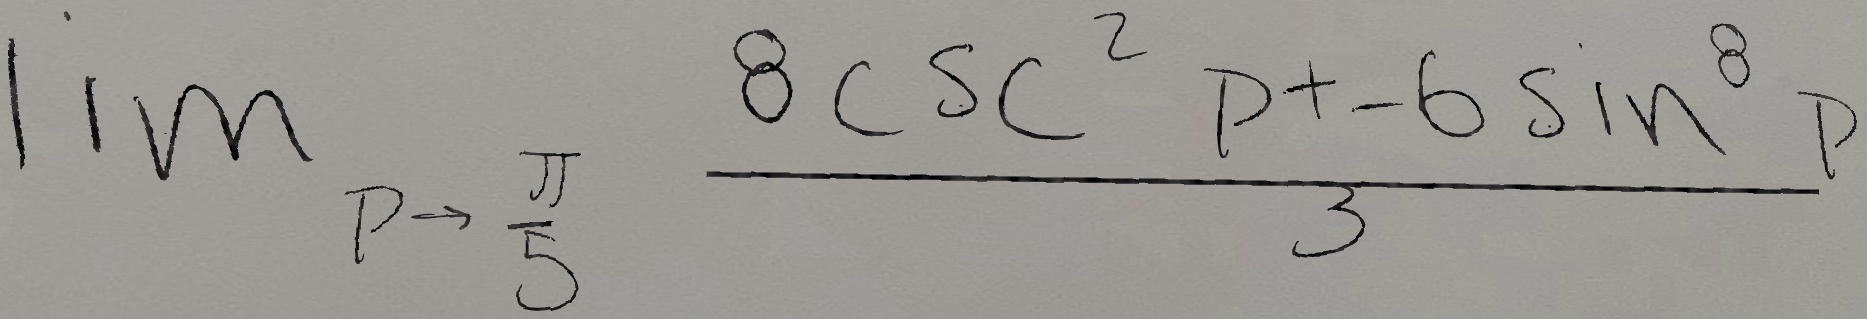 \lim_{p \to \frac{\pi}{5}} \frac{8 \csc^2 p + -6 \sin^8 p}{3}